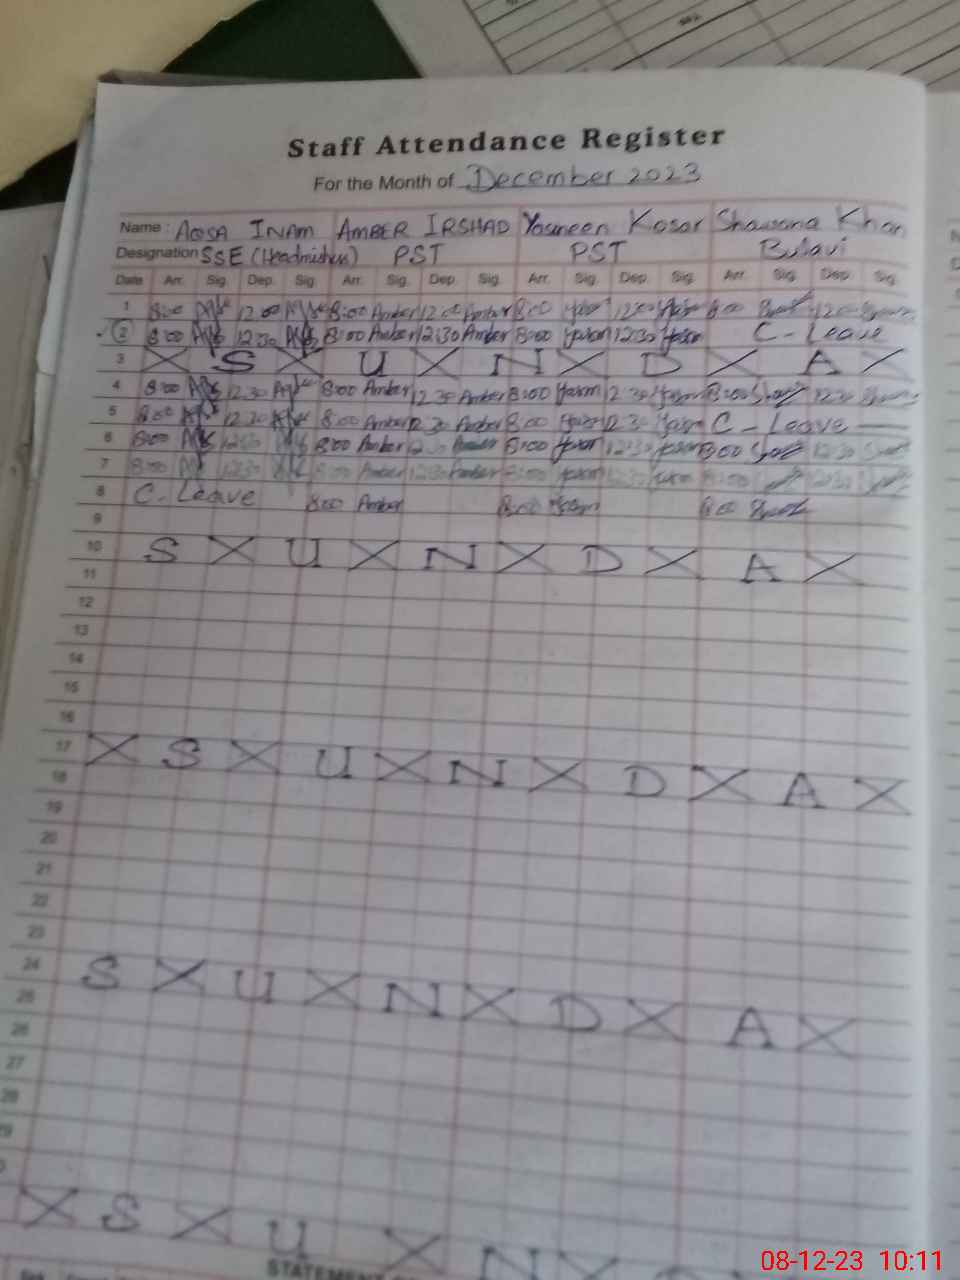 Staff Attendance Register
For the Month of December 2023
Name : AQSA INAM AMBER IRSHAD Yasmeen Kosar Shawana Khan
Designation SSE (Headmistress) PST PST Bulavi
Date Arr. Sig. Dep. Sig. Arr. Sig. Dep. Sig. Arr. Sig. Dep. Sig. Arr. Sig. Dep. Sig.
1 8:00 12:00 8:00 Amber 12:00 Amber 8:00 12:00 8:00 12:00
2 8:00 12:30 8:00 Amber 12:30 Amber 8:00 12:30 C - Leave
3 X S X U X N X D X A X
4 8:00 12:30 8:00 Amber 12:30 Amber 8:00 12:30 8:00 12:30
5 8:00 12:30 8:00 Amber 12:30 Amber 8:00 12:30 C - Leave
6 8:00 12:30 8:00 Amber 12:30 Amber 8:00 12:30 8:00 12:30
7 8:00 12:30 8:00 Amber 12:30 Amber 8:00 12:30 8:00 12:30
8 C. Leave 8:00 Amber 8:00 8:00
9
10 S X U X N X D X A X
11
12
13
14
15
16
17 X S X U X N X D X A X
18
19
20
21
22
23
24 S X U X N X D X A X
25
26
27
28
29
X S X U X N X
STATEMENT
08-12-23 10:11